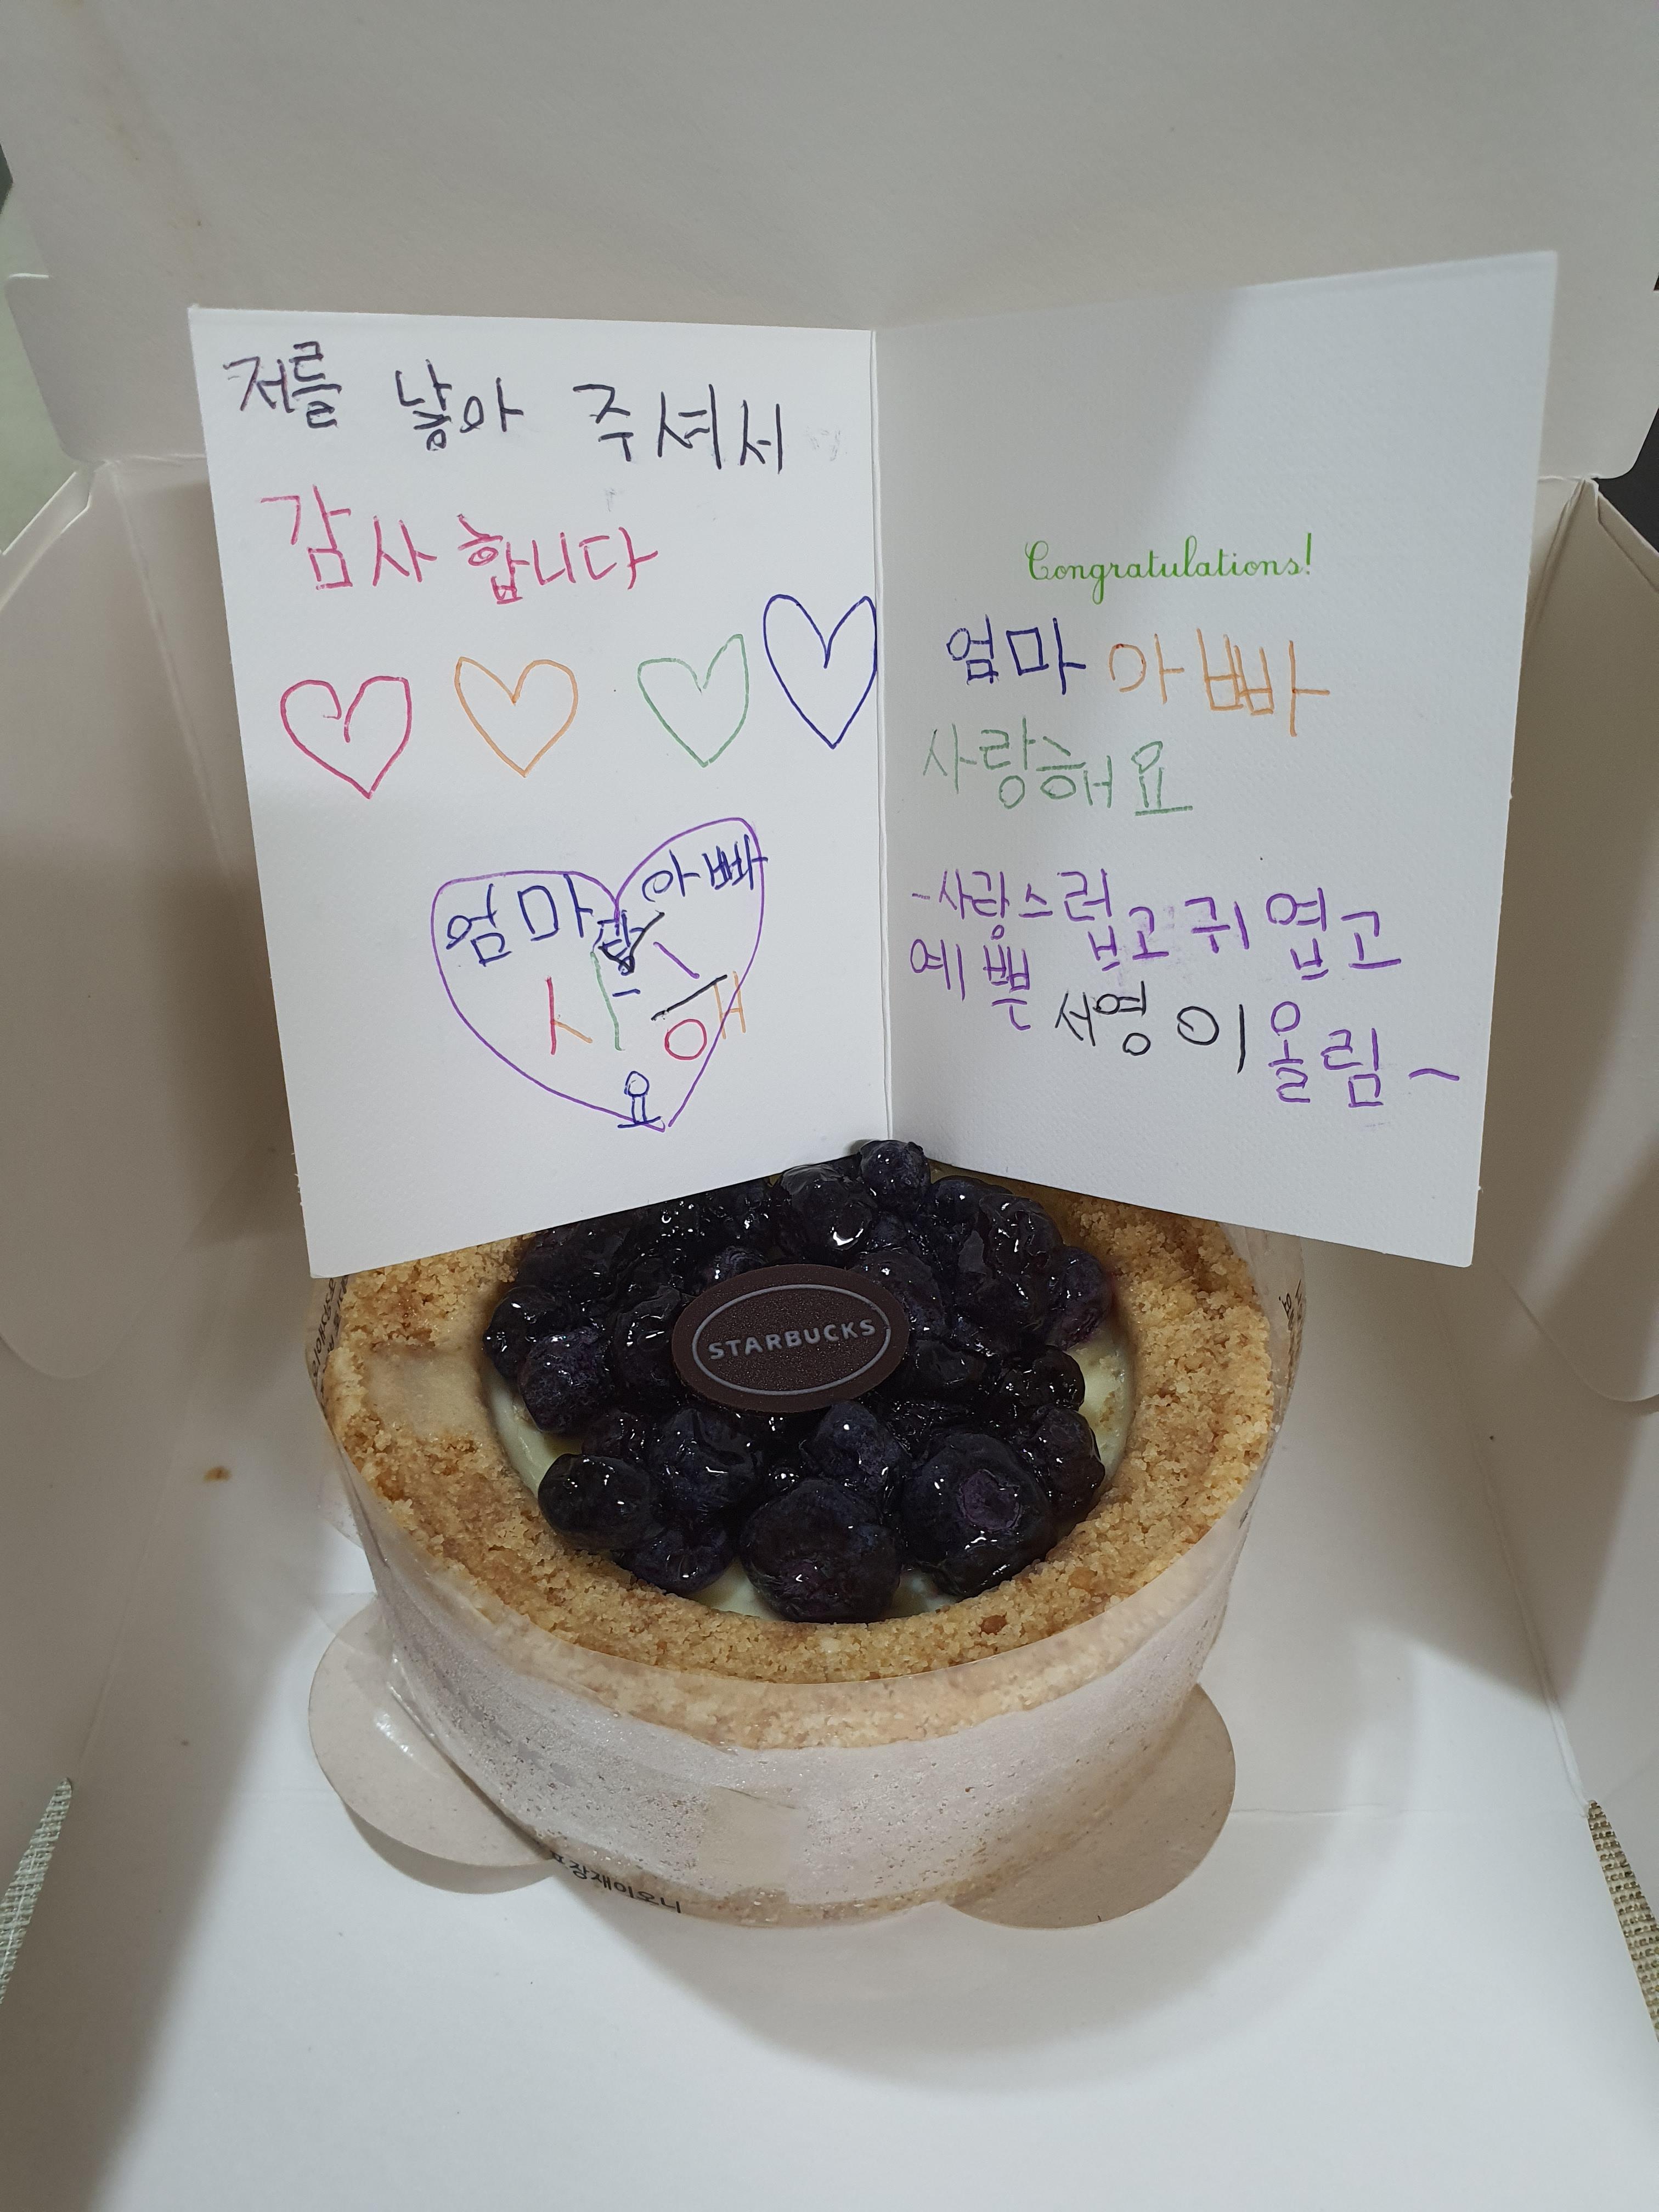 저를 낳아 주셔서
감사합니다
엄마 아빠
Congratulations!
엄마 아빠
사랑해요
-사랑스럽고 귀엽고
예쁜 서영이 올림~
STARBUCKS